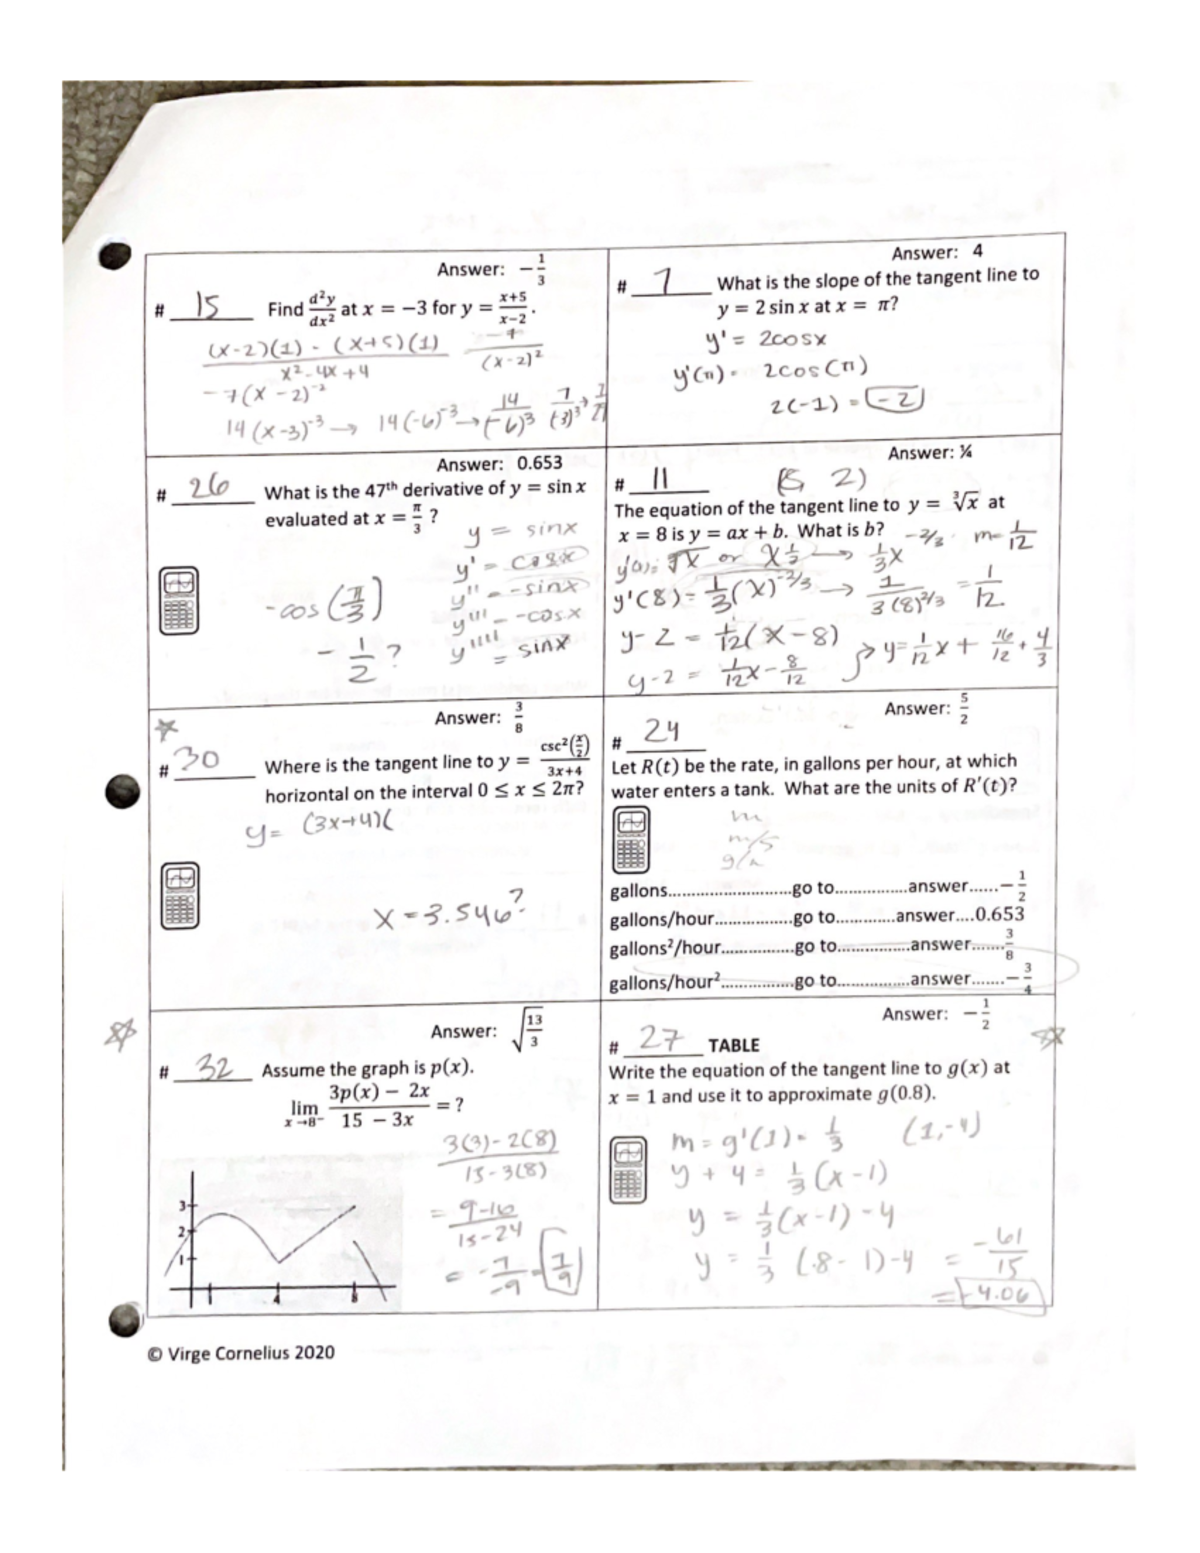 Answer: −1/3
# 15 Find d²y/dx² at x = −3 for y = x+5/x−2.
(x-2)(1) - (x+5)(1) / x²-4x+4 -7/(x-2)²
-7(x-2)⁻²
14(x-3)⁻³ → 14(-6)⁻³ → 14/(-6)³ 7/(-3)³ →
Answer: 4
# 7 What is the slope of the tangent line to
y = 2 sin x at x = π?
y' = 2cosx
y'(π) = 2cos(π)
2(-1) = -2
Answer: 0.653
# 26 What is the 47th derivative of y = sin x
evaluated at x = π/3 ?
y = sinx
y' = cosx
y'' = -sinx
y''' = -cosx
y'''' = sinx
-cos(π/3)
- 1/2 ?
Answer: ¼
# 11 (8, 2)
The equation of the tangent line to y = ∛x at
x = 8 is y = ax + b. What is b? -2/3 m= 1/12
√x or x → 1/3 x
y'(8) = 1/3(x)^-2/3 → 1/3(8)^2/3 = 1/12
y-2 = 1/12(x-8) → y= 1/12 x + 16/12 + 4/3
y-2 = 1/12x - 8/12
Answer: 3/8
# 30 Where is the tangent line to y = csc²(x/2)/3x+4
horizontal on the interval 0 ≤ x ≤ 2π?
y= (3x+4)(
x = 3.546?
Answer: 5/2
# 24
Let R(t) be the rate, in gallons per hour, at which
water enters a tank. What are the units of R′(t)?
m
m/s
gallons............................go to................answer......−1/2
gallons/hour.................go to.............answer....0.653
gallons²/hour................go to................answer.......3/8
gallons/hour²................go to................answer.......−3/4
Answer: √13/3
# 32 Assume the graph is p(x).
lim x→8⁻ 3p(x) − 2x / 15 − 3x = ?
3(3)-2(8) / 15-3(8)
= 9-16 / 15-24
= -7/-9 = 7/9
3
2
1
1 4 8
Answer: −1/2
# 27 TABLE
Write the equation of the tangent line to g(x) at
x = 1 and use it to approximate g(0.8).
m = g'(1) = 1/3 (1,-4)
y + 4 = 1/3 (x-1)
y = 1/3(x-1) -4
y = 1/3 (.8-1)-4 = -61/15
= -4.06
© Virge Cornelius 2020